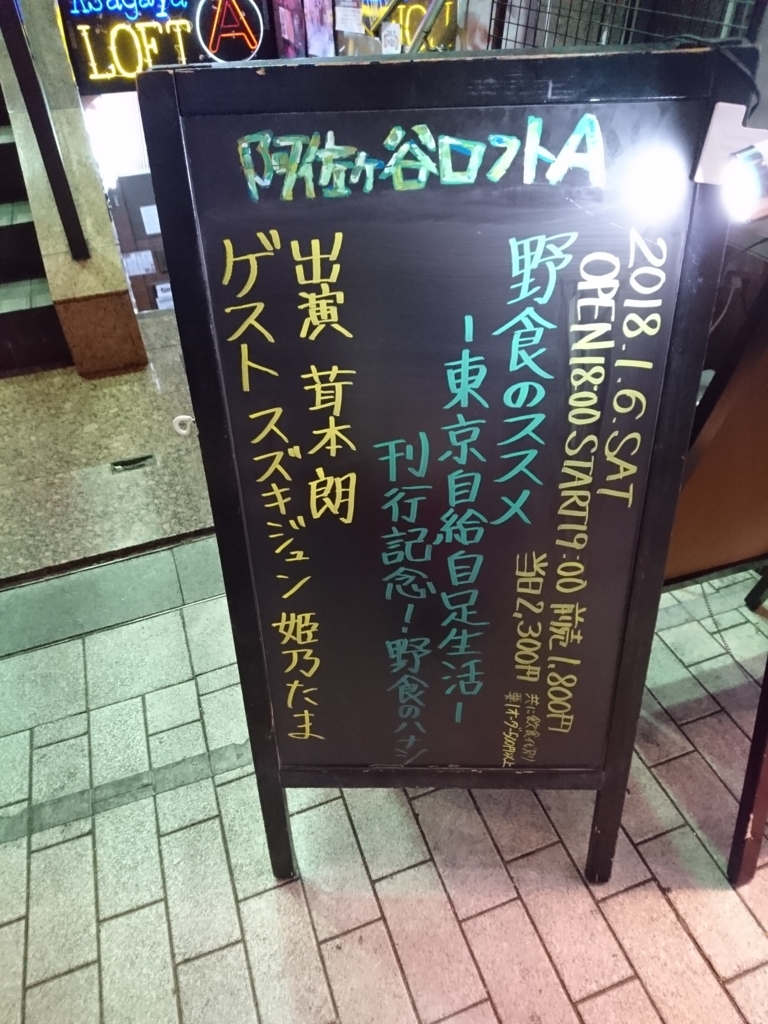 Asagaya
LOFT A
阿佐ヶ谷ロフトA
2018.1.6.SAT
OPEN18:00 START19:00 前売1,800円
当日2,300円
共に飲食代別
要1オーダー500円以上
野食のススメ
ー東京自給自足生活ー
刊行記念!野食のハナシ
出演 茸本朗
ゲスト スズキジュン 姫乃たま